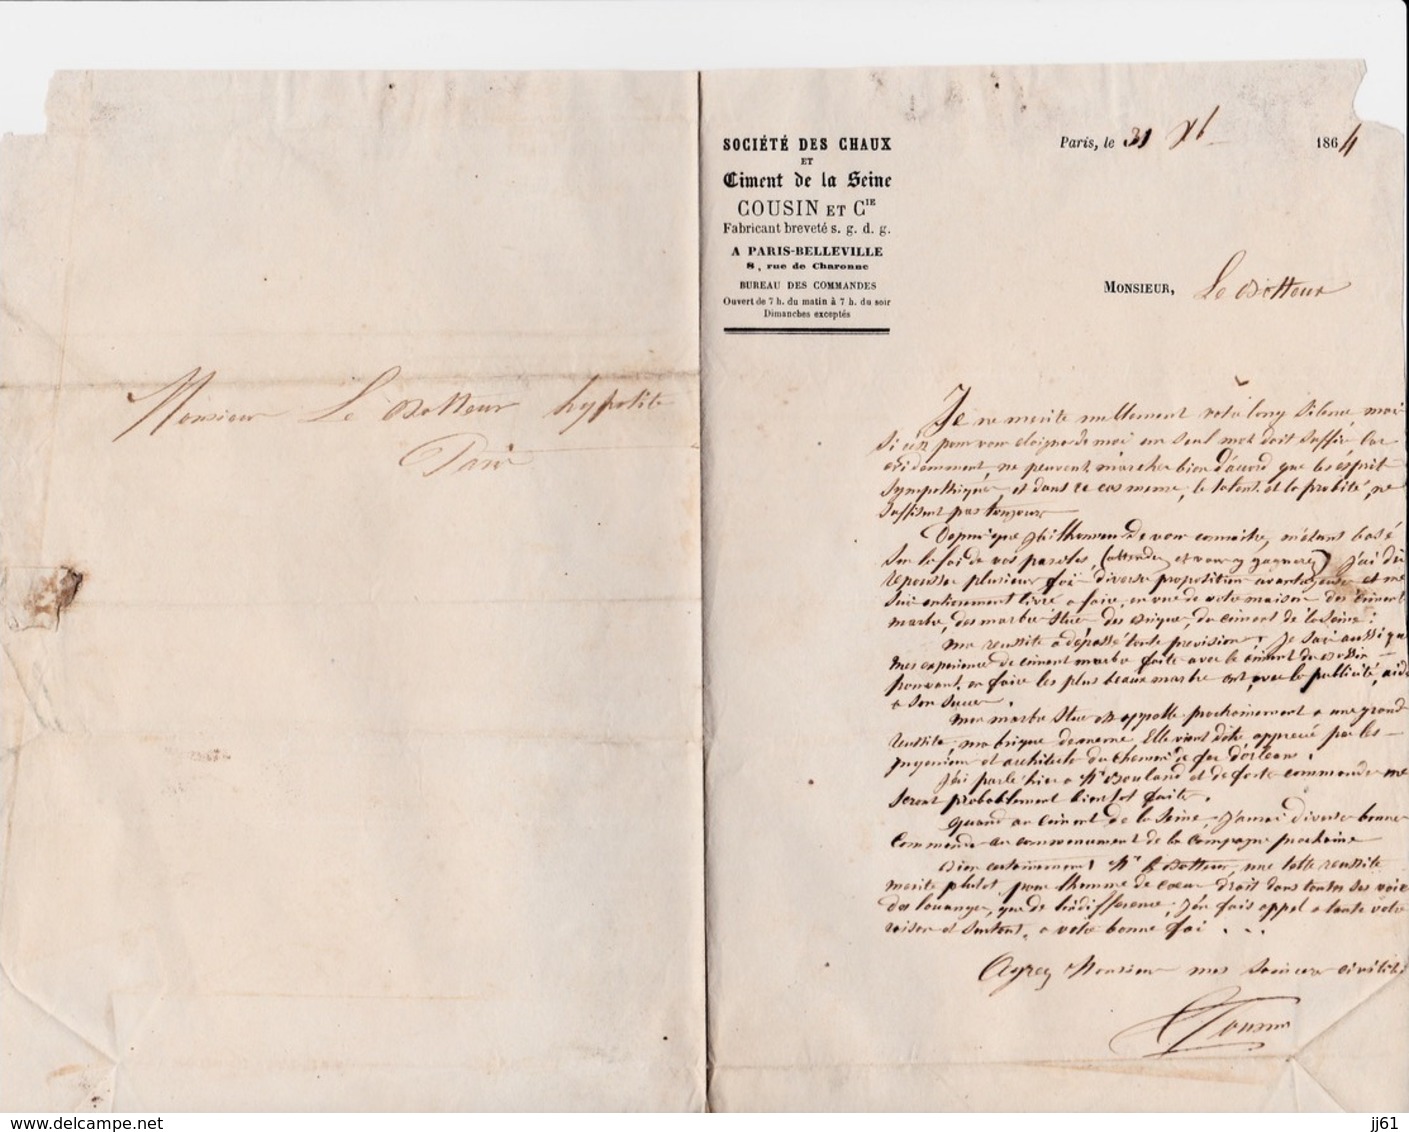 SOCIÉTÉ DES CHAUX
ET
Ciment de la Seine
COUSIN ET CIE
Fabricant breveté s. g. d. g.
A PARIS-BELLEVILLE
8, rue de Charonne
BUREAU DES COMMANDES
Ouvert de 7 h. du matin à 7 h. du soir
Dimanches exceptés
Paris, le 31 Xb 1864
MONSIEUR, Le Botteur
Monsieur Le Botteur hypolite
Paris
Je ne merite nullement votre long silence moi
si pour vous eloigner de moi un seul mot doit suffir Car
evidemment, ne peuvent marcher bien d'accord que les esprit
sympathiques, et dans ce cas meme, le talent et la probité, ne
suffisent pas toujours
Depuis que j'ai l'honneur de vous connaitre, m'étant basé
sur la foi de vos paroles, (attendez et vous y gagnerez) J'ai du
repousser plusieurs foi diverse proposition avantageuse et me
suis entierement livré a faire, en vue de votre maison des ciment
marbre, des marbre Stuc, des brique, du ciment de la Seine;
ma reussite a dépassé toute prevision; Je sai aussi que
mes experience de ciment marbre faite avec le ciment du Bassin
pouvant en faire les plus beaux marbre ont, avec la publicité, aidé
a son succes.
Mon marbre Stuc est appellé prochainement a une grande
reussite, ma brique de meme. Elle vient d'être apprecié par les
ingenieur et architecte du chemin de fer d'orleans.
J'ai parlé hier a Mr Bouland et de forte commande me
seront probablement bientot faite.
quand au ciment de la Seine, J'aurai diverse bonne
commande au commencement de la campagne prochaine
Bien certainement Mr le Botteur, une telle reussite
merite plutot pour l'homme de coeur droit dans toutes ses voies
des louanges, que de l'indifference, J'en fais appel a toute votre
raison et surtout, a votre bonne foi . . .
Agréez Monsieur mes sinceres civilités
Cousin
jj61